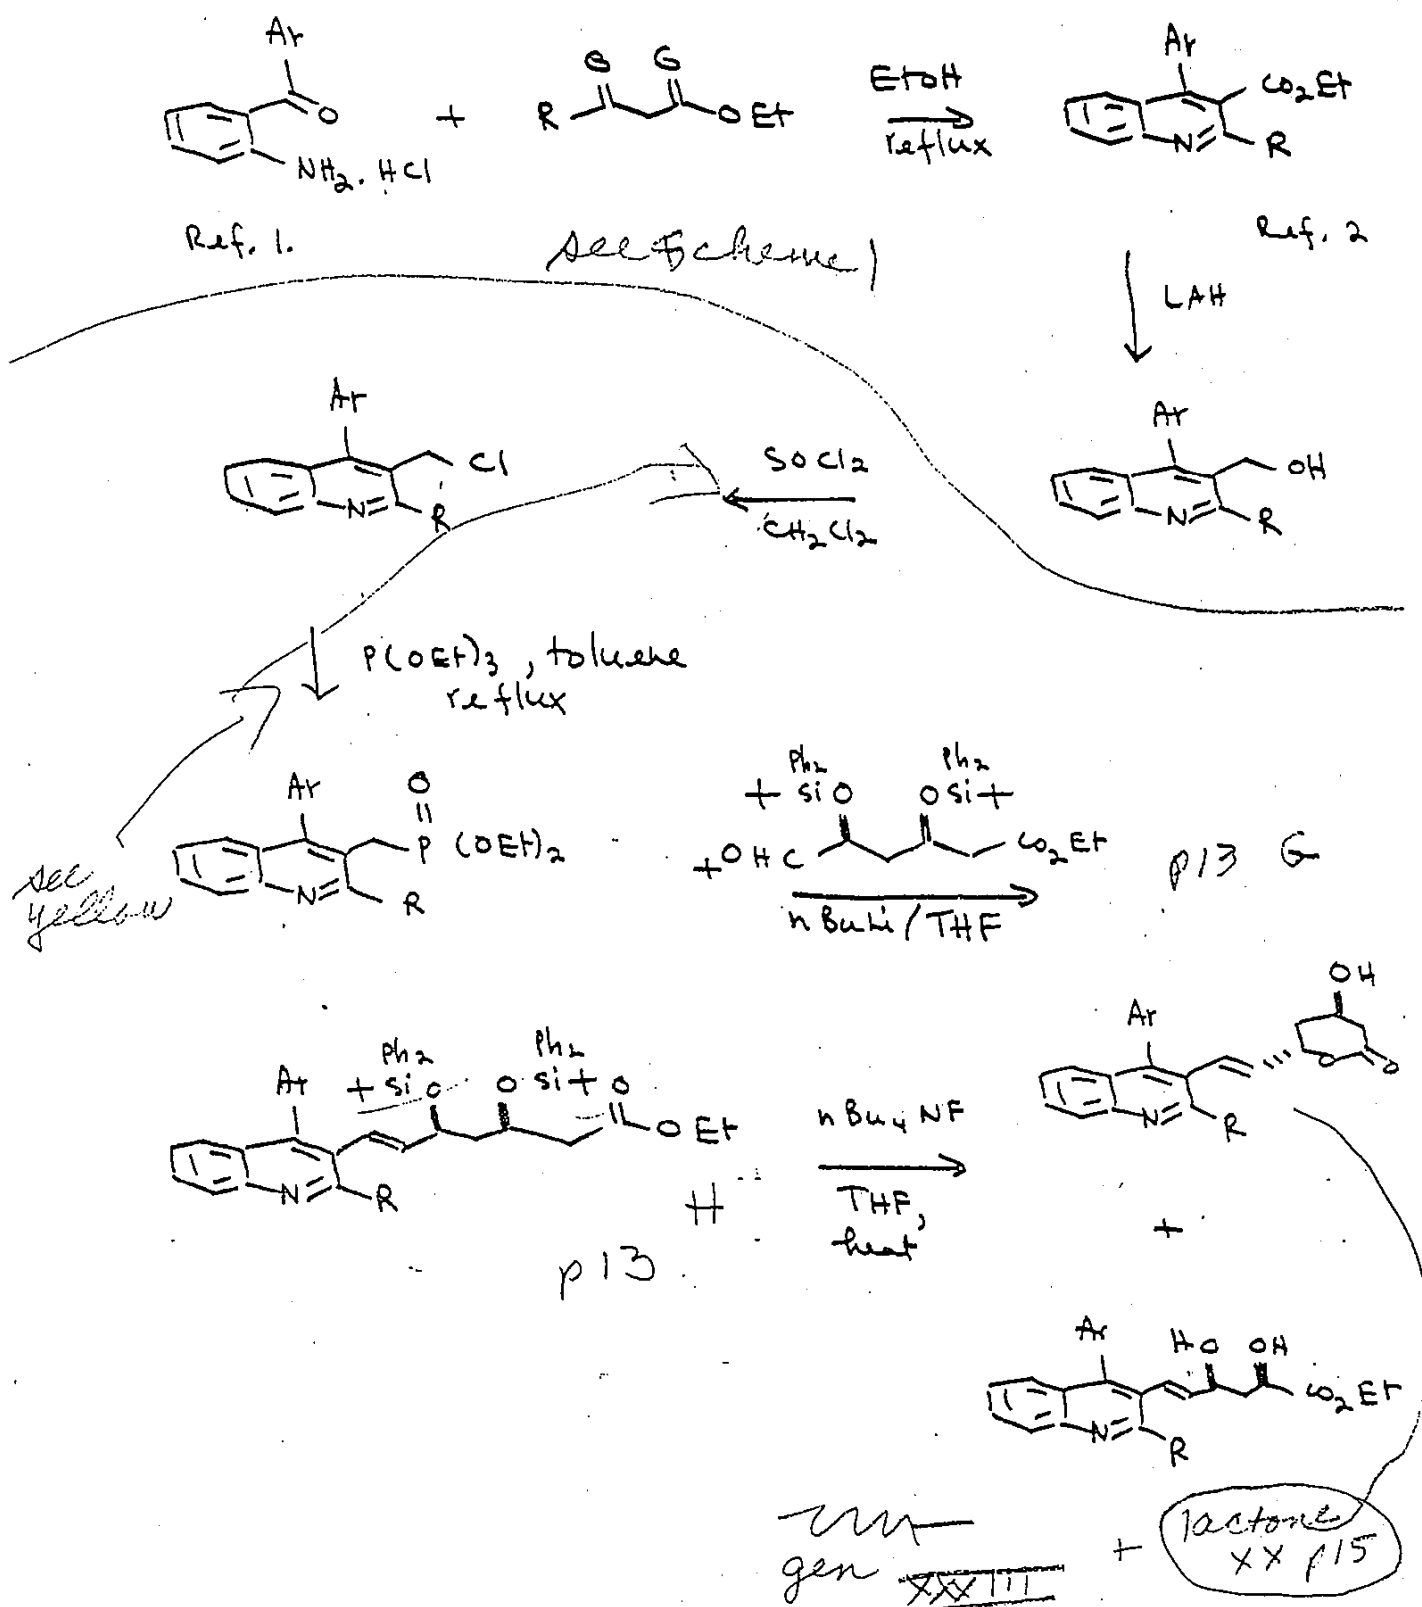 Ar
O
NH2. HCl
+
R
O O
OEt
EtOH
reflux
Ar
CO2Et
N
R
Ref. 1.
see Scheme 1
Ref. 2
LAH
Ar
Cl
N
R
SOCl2
CH2Cl2
Ar
OH
N
R
P(OEt)3, toluene
reflux
see
yellow
Ar
O
P (OEt)2
N
R
Ph2 Ph2
+ SiO OSi+
+OHC
CO2Et
nBuLi/THF
p13 G
Ar
Ph2 Ph2
+ Si O O Si + O
OEt
N
R
H
p13
nBu4NF
THF,
heat
OH
Ar
O
O
N
R
+
Ar
HO OH
CO2Et
N
R
gen XXXIII + lactone
XX p15